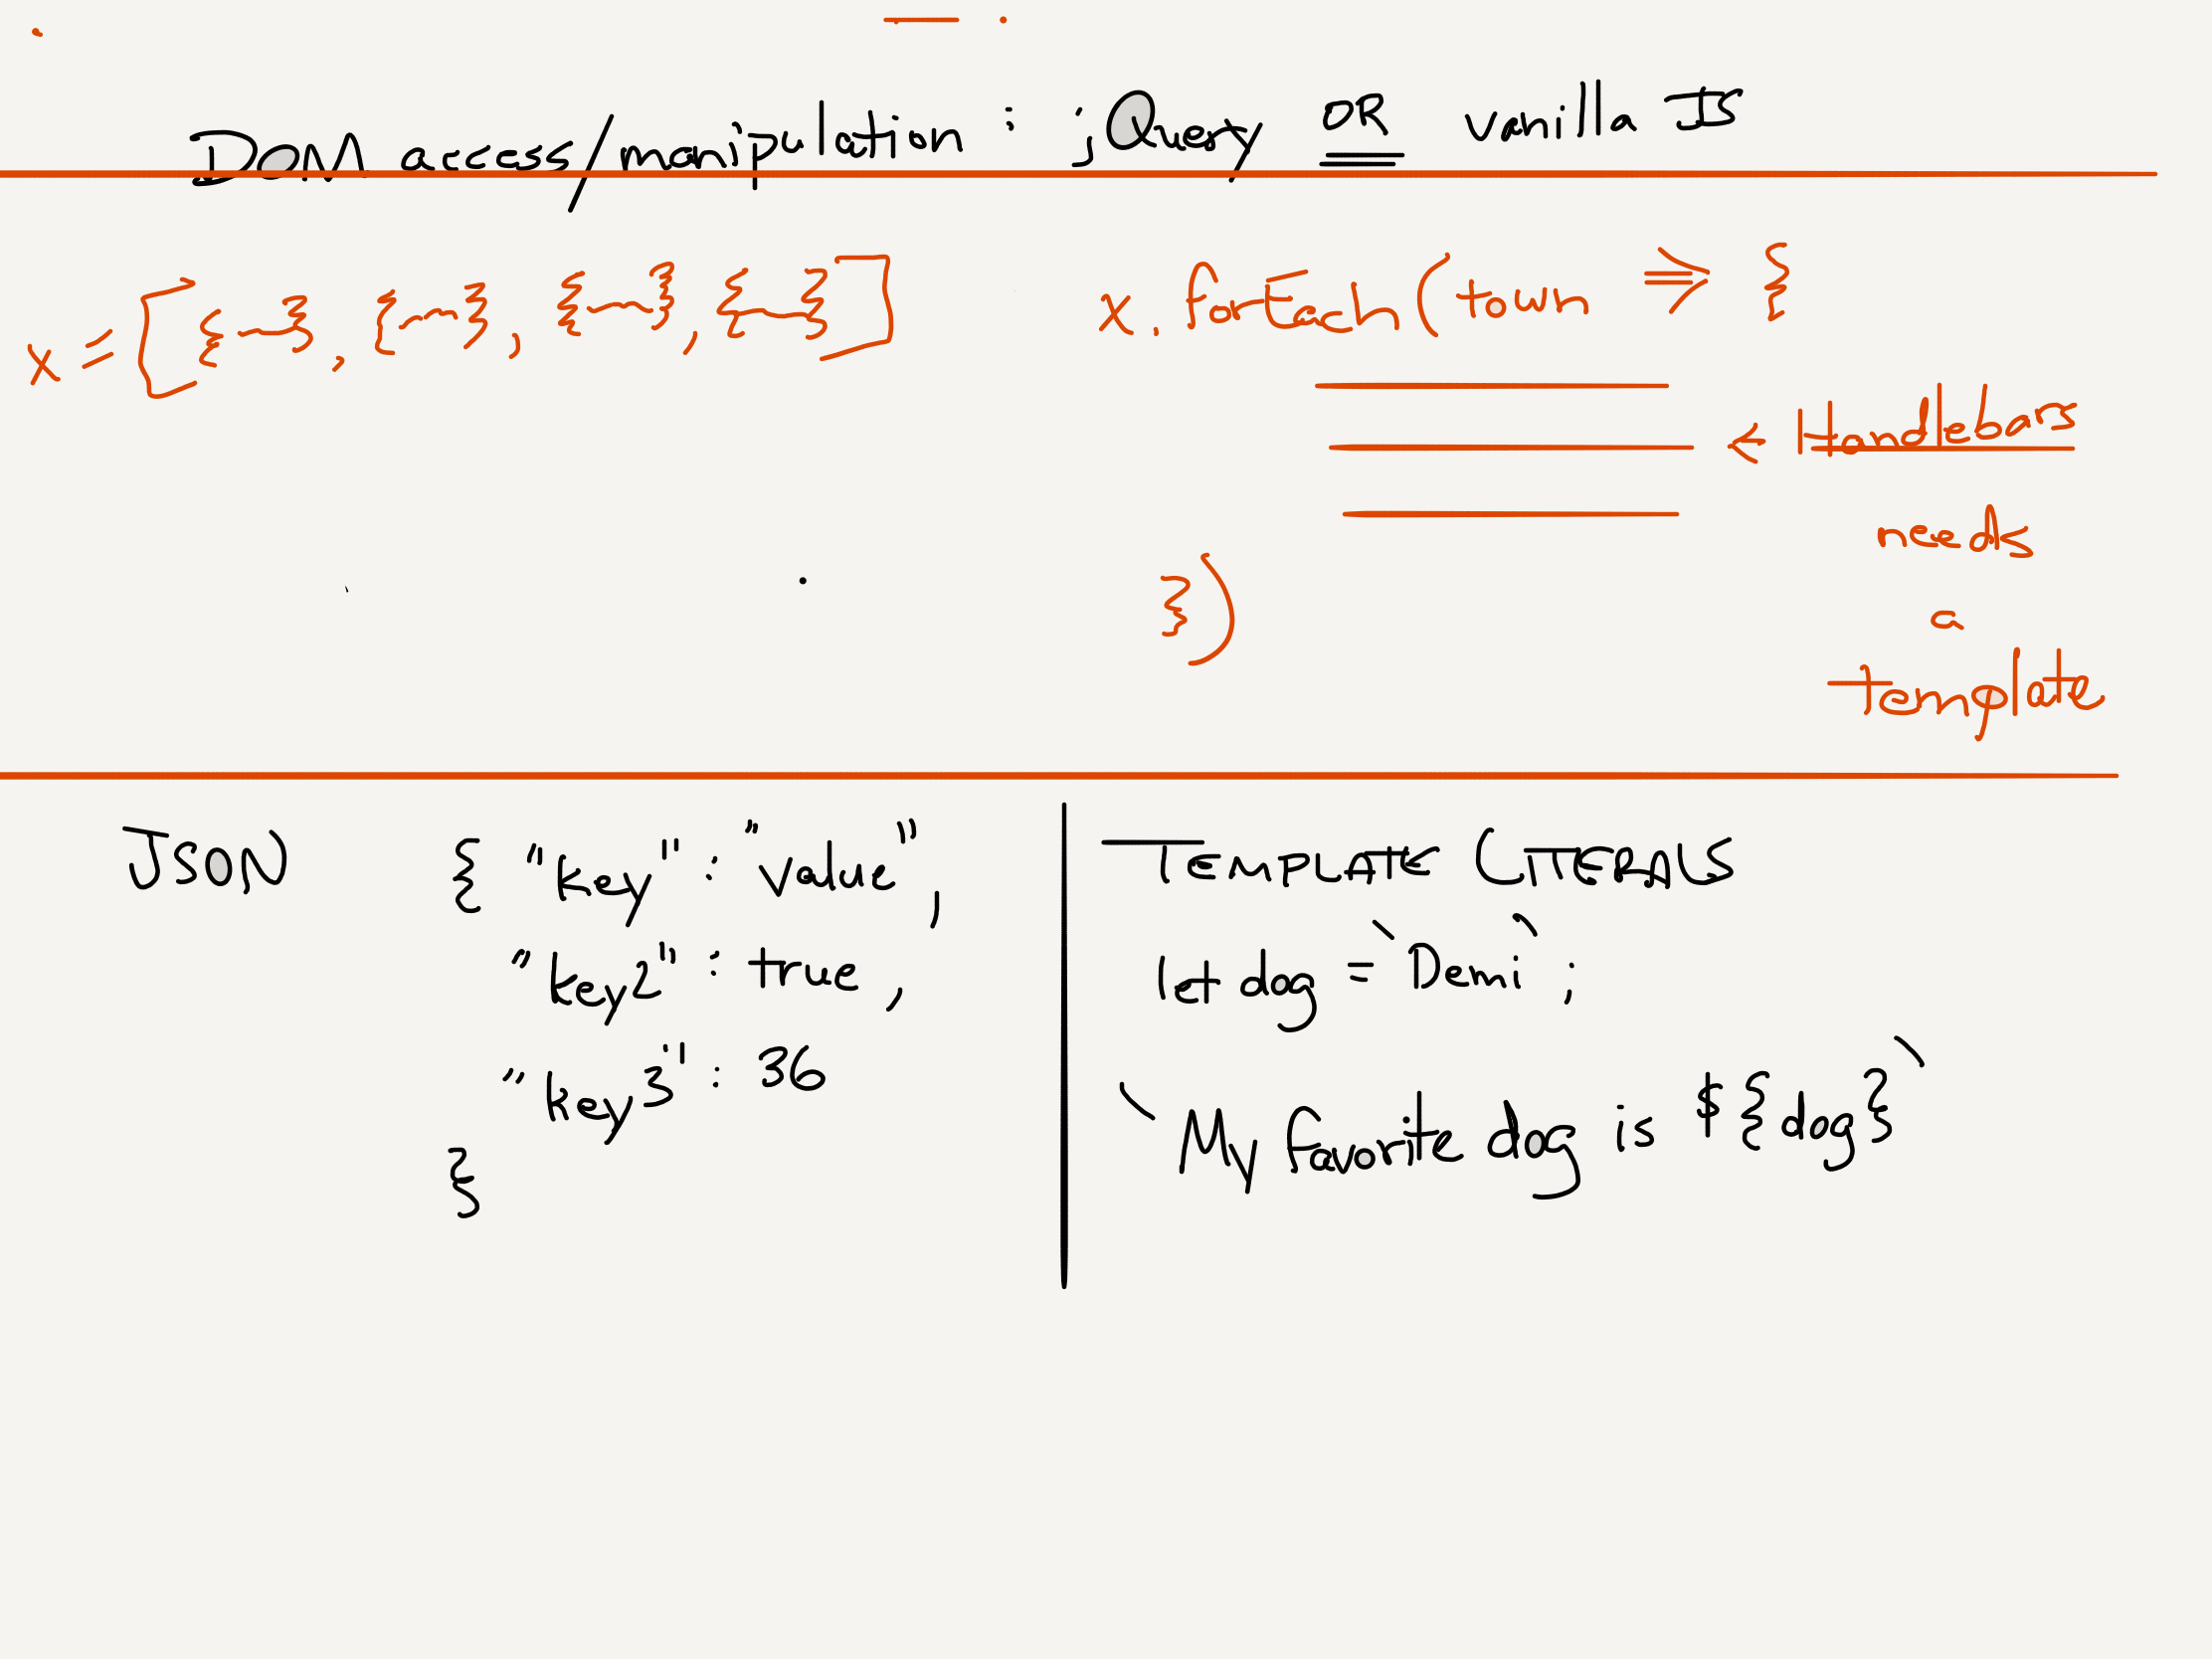 DOM access/manipulation : jQuery OR vanilla JS
x = [{~}, {~}, {~}, {~}]
x.forEach(town => {
← Handlebars
needs
a
template
})
JSON
{ "key" : "value",
"key2" : true,
"key3" : 36
}
TEMPLATE LITERALS
let dog = `Demi`;
`My favorite dog is ${dog}`